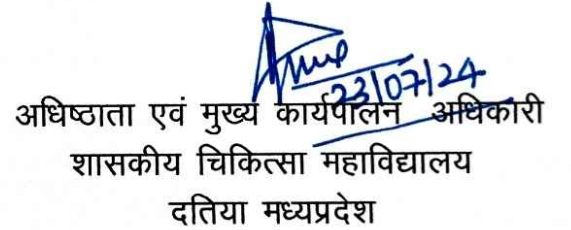 23/07/24
अधिष्ठाता एवं मुख्य कार्यपालन अधिकारी
शासकीय चिकित्सा महाविद्यालय
दतिया मध्यप्रदेश